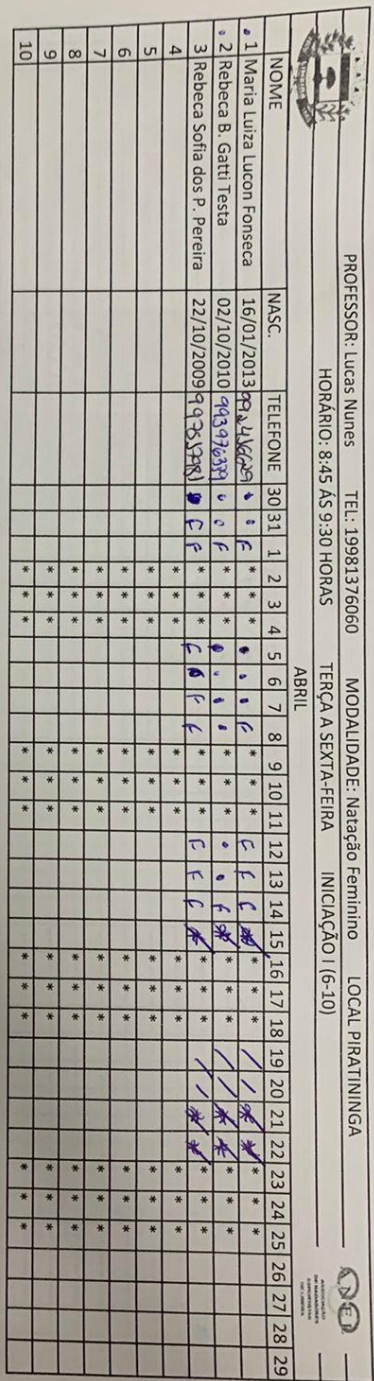 PROFESSOR: Lucas Nunes TEL: 19981376060 MODALIDADE: Natação Feminino LOCAL PIRATININGA
HORÁRIO: 8:45 ÁS 9:30 HORAS TERÇA A SEXTA-FEIRA INICIAÇÃO I (6-10)
ABRIL
NOME NASC. TELEFONE 30 31 1 2 3 4 5 6 7 8 9 10 11 12 13 14 15 16 17 18 19 20 21 22 23 24 25 26 27 28 29
1 Maria Luiza Lucon Fonseca 16/01/2013 • • F * * * • • • F * * * F F F * * * * / / * * * * *
2 Rebeca B. Gatti Testa 02/10/2010 993976379 • • F * * * • • • • * * * • • F * * * * / / * * * * *
3 Rebeca Sofia dos P. Pereira 22/10/2009 • F F * * * F • F F * * * F F F * * * * / / * * * * *
4 * * * * * * * * * * * *
5 * * * * * * * * * * * *
6 * * * * * * * * * * * *
7 * * * * * * * * * * * *
8 * * * * * * * * * * * *
9 * * * * * * * * * * * *
10 * * * * * * * * * * * *